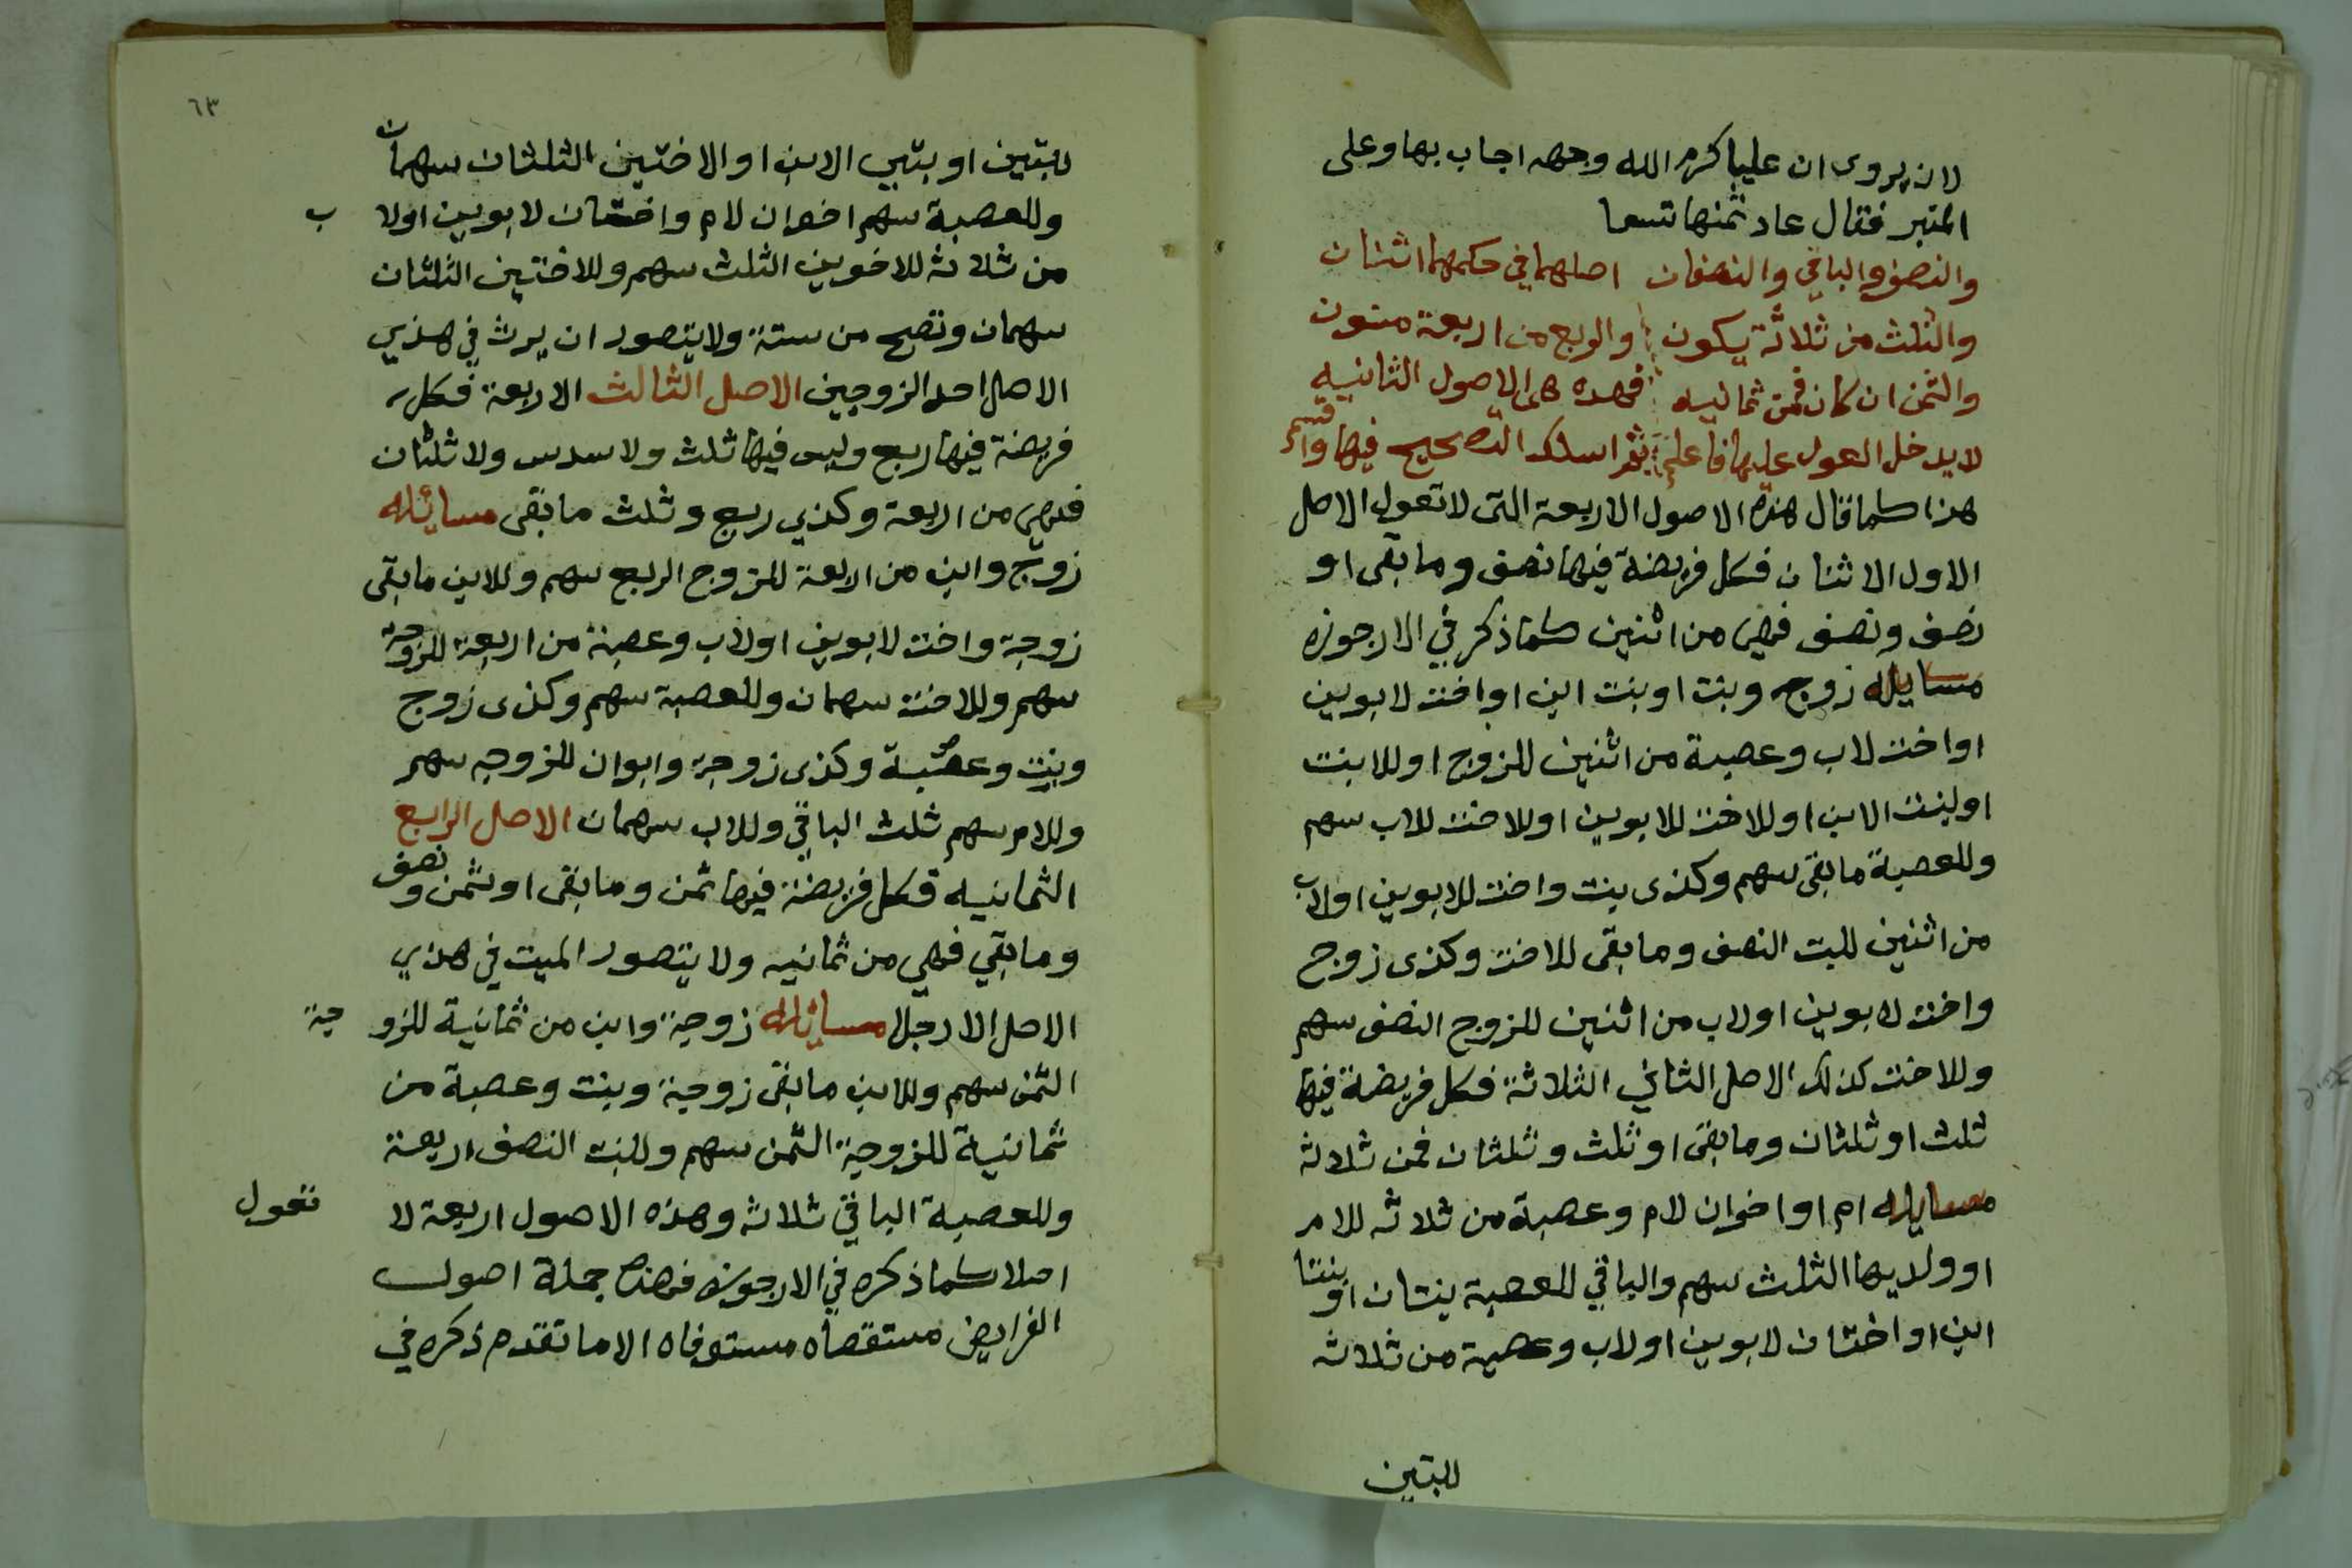 لان يروى ان عليا كرم الله وجهه اجاب بها وعلى
المنبر فقال عاد ثمنها تسعا
والنصف والباقي والنصفان اصلهما في حكمهما اثنان
والثلث من ثلاثة يكون والربع من اربعة مسنون
والثمن ان كان فمن ثمانيه فهده هى الاصول الثانيه
لا يدخل العول عليها فاعلم ثم اسلك التصحيح فيها واقسم
هذا كما قال هذه الاصول الاربعة التى لا تعول الاصل
الاول الاثنان فكل فريضة فيها نصف وما بقى او
نصف ونصف فهى من اثنين كما ذكر في الارجوزه
مسايله زوج وبنت او بنت ابن او اخت لابوين
او اخت لاب وعصبة من اثنين للزوج او للابنت
او لبنت الابن او للاخت للابوين او للاخت للاب سهم
وللعصبة ما بقى سهم وكذى بنت واخت للابوين او لاب
من اثنين للبت النصف وما بقى للاخت وكذى زوج
واخت لابوين او لاب من اثنين للزوج النصف سهم
وللاخت كذلك الاصل الثاني الثلاثة فكل فريضة فيها
ثلث او ثلثان وما بقى او ثلث وثلثان فمن ثلاثة
مسايله ام او اخوان لام وعصبة من ثلاثه للام
او ولديها الثلث سهم والباقي للعصبة بنتان او بنتا
ابن او اختان لابوين او لاب وعصبة من ثلاثة
للبتين
٦٣
للبتين او بنتي الابن او الاختين الثلثان سهمان
وللعصبة سهم اخوان لام واختان لابوين اولا ب
من ثلاثة للاخوين الثلث سهم وللاختين الثلثان
سهمان وتصح من ستة ولا يتصور ان يرث في هذي
الاصل احد الزوجين الاصل الثالث الاربعة فكل
فريضة فيها ربع وليس فيها ثلث ولا سدس ولا ثلثان
فهى من اربعة وكذي ربع وثلث ما بقى مسائله
زوج وابن من اربعة للزوج الربع سهم وللابن ما بقى
زوجة واخت لابوين او لاب وعصبة من اربعة للزوجة
سهم وللاخت سهمان وللعصبة سهم وكذى زوج
وبنت وعصبة وكذى زوجة وابوان للزوجه سهم
وللام سهم ثلث الباقي وللاب سهمان الاصل الرابع
الثمانيه فكل فريضة فيها ثمن وما بقى او ثمن ونصف
وما بقي فهي من ثمانيه ولا يتصور الميت في هذي
الاصل الا رجلا مسائله زوجة وابن من ثمانية للزو جة
الثمن سهم وللابن ما بقى زوجة وبنت وعصبة من
ثمانية للزوجة الثمن سهم وللبنت النصف اربعة
وللعصبة الباقي ثلاثه وهذه الاصول اربعة لا تعول
اصلا كما ذكره في الارجوزه فهذه جملة اصول
الفرايض مستقصاه مستوفاه الا ما تقدم ذكره في